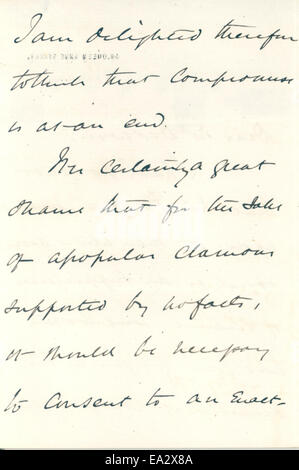 I am delighted therefore
to think that Compromise
is at an end.
It is certainly a great
shame that for the sake
of a popular clamour
supported by no facts,
it should be necessary
to consent to an Enact-
alamy
Image ID: EA2X8A
www.alamy.com